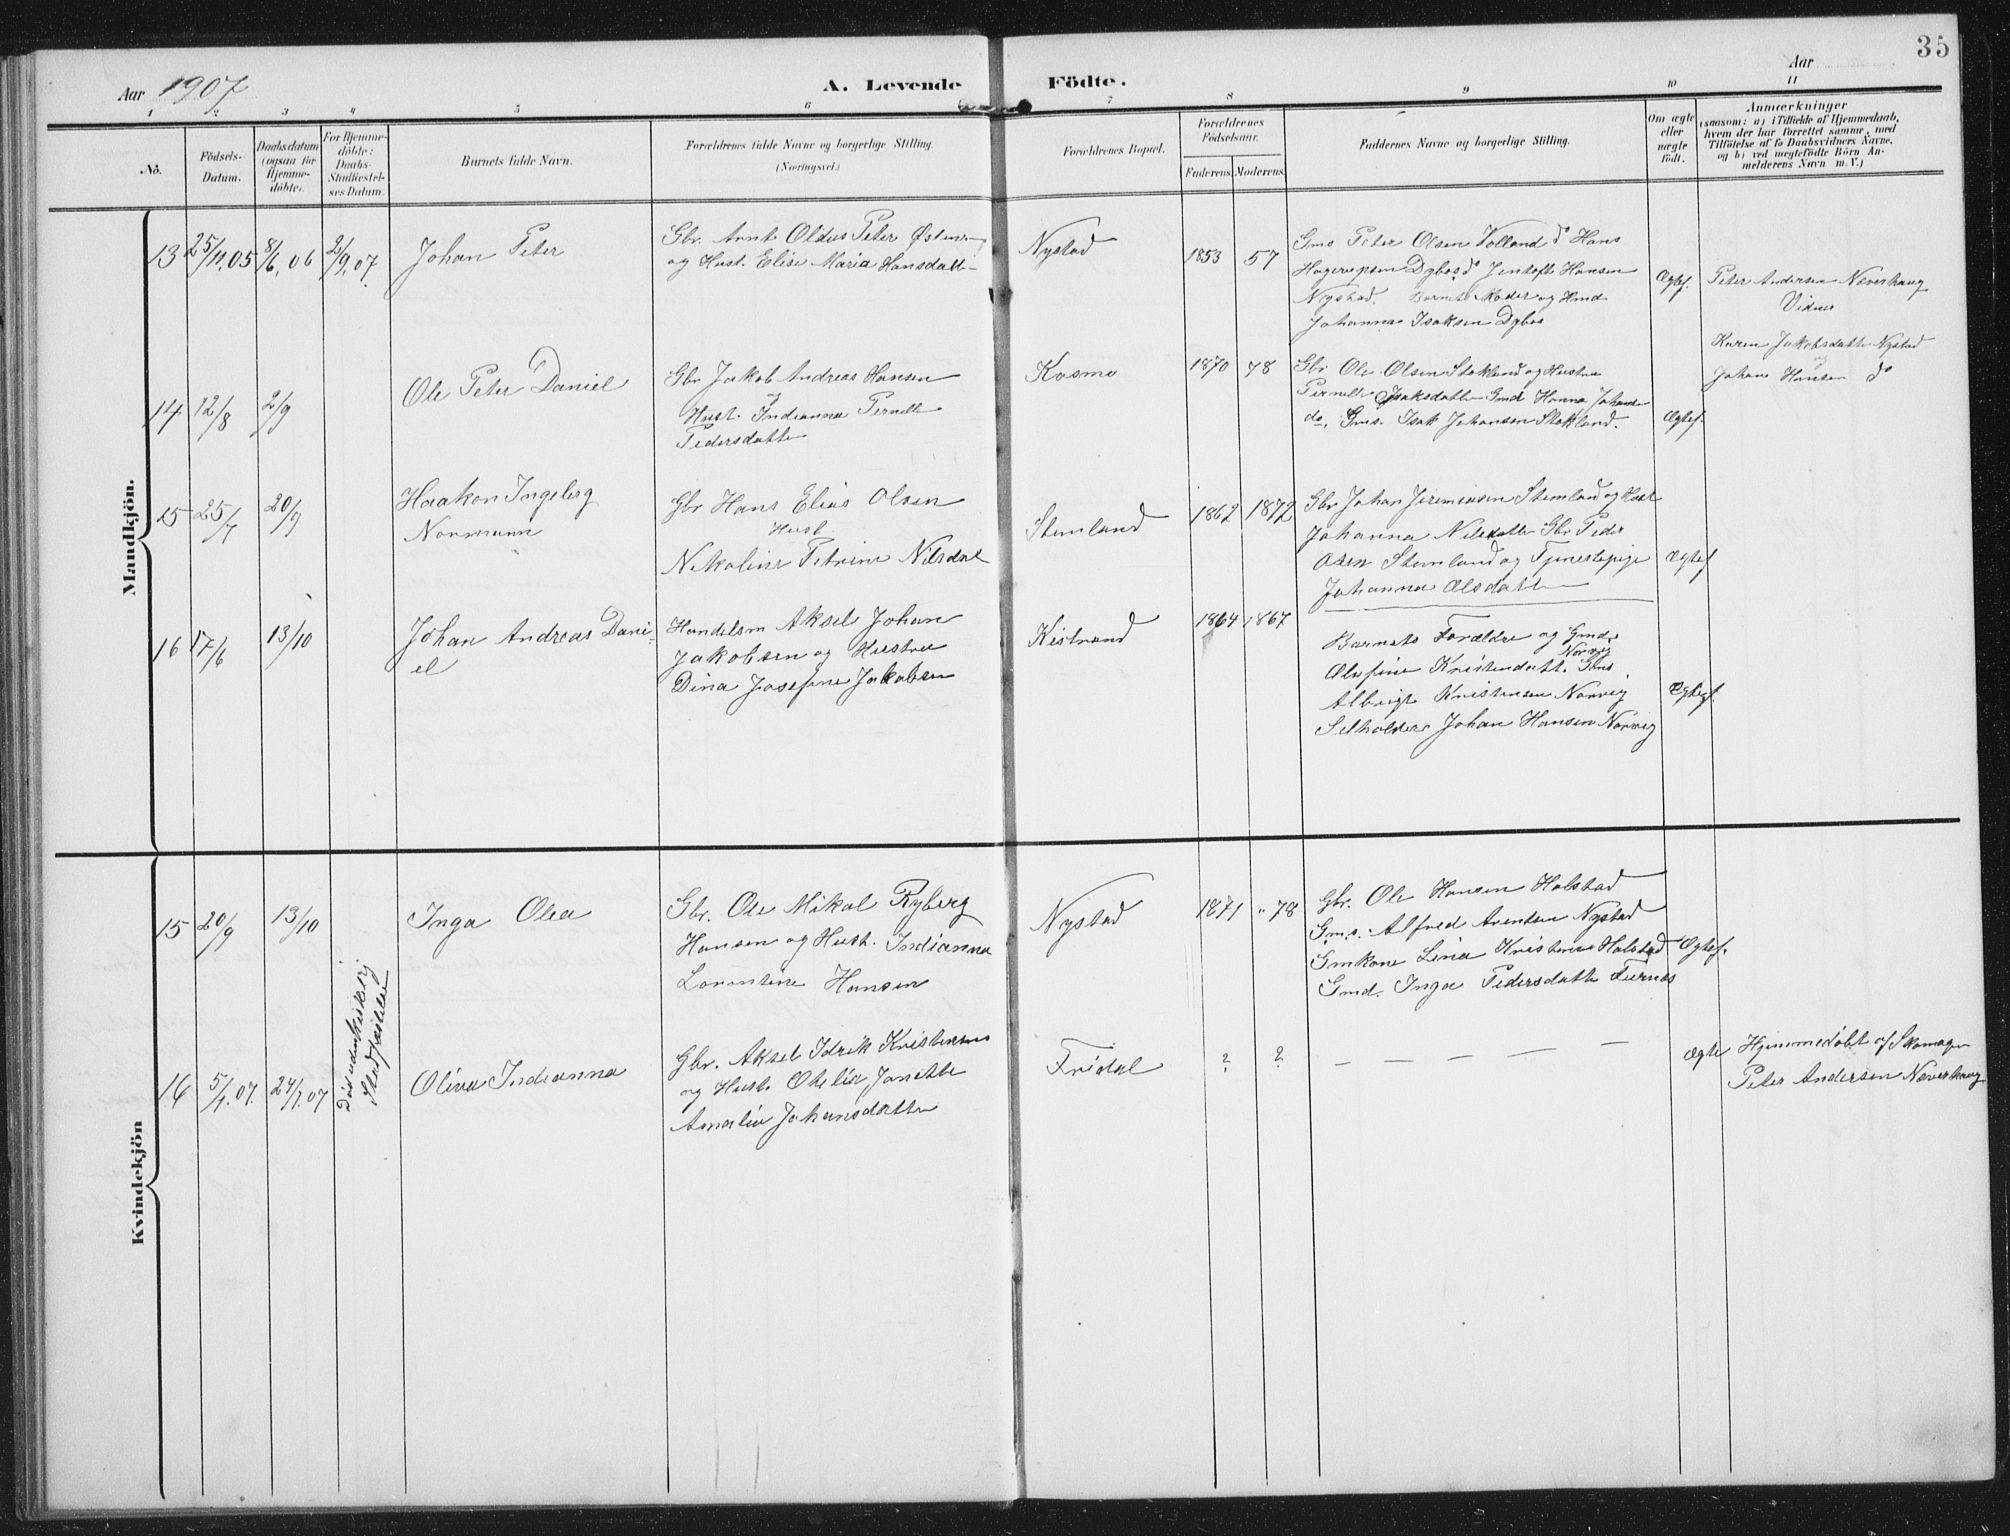 35
Aar 1907
A. Levende Födte.
Aar
1 2 3 4 5 6 7 8 9 10 11
No.
Födsels-
Datum.
Daabsdatum
(ogsaa for
Hjemme-
döbte).
For Hjemme-
döbte:
Daabs-
Stadfæstel-
ses Datum.
Barnets fulde Navn.
Forældrenes fulde Navne og borgerlige Stilling.
(Næringsvei.)
Forældrenes Bopæl.
Forældrenes
Födselsaar.
Faderens. Moderens.
Faddernes Navne og borgerlige Stilling.
Om ægte
eller
uægte
födt.
Anmærkninger
(saasom: a) i Tilfælde af Hjemmedaab,
hvem der har forrettet samme, med
Tilföielse af to Daabsvidners Navne,
og b) ved uægtefödte Börn An-
melderens Navn m. V.)
Mandkjön.
13 25/11.05 8/6.06 2/9.07.
Johan Peter
Gbr. Arnt Oldus Peter
og Hust. Elise Maria Hansdatte
Nystad
1853 57
Gms Peter Olsen Volland d Hans
Hagerupsen Dybos d Jentoft Hansen
Nystad. Barnets Moder og Gmd
Johanna Isaksen Dybos
Ægtef.
Peter Andersen Næverhaug
Vidner
Karen Jakobsdatte Nystad
og
Johan Hansen do
14 12/8 2/9
Ole Peter Daniel
Gbr Jakob Andreas Hansen
og
Hust. Indianna Pernelle
Pedersdatte
Kosmo
1870 78
Gbr Ole Olsen Stokland og Hustru
Pernelle Isaksdatte Gmd Hanna Johanse
do, Gms. Isak Johansen Stokland.
Ægtef.
15 25/7 20/9
Haakon Ingeberg
Normann
Gbr Hans Elias Olsen
Hust.
Nikoline Petrine Nilsdat
Stemland
1862 1872
Gbr Johan Jeremiasen Stemland og Hust
Johanna Nilsdatte Gbr Peder
Olsen Stemland og Tjenestepige
Johanna Olsdatte
Ægtef
16 17/6 13/10
Johan Andreas Dani-
el
Handelsm Aksel Johan
Jakobsen og Hustru
Dina Josefine Jakobsen
Kistrand
1864 1867
Barnets Forældre og Gmd.
Norvig
Olufine Kristensdatt. Gms.
Albrigt Kristensen Norvig
Selholder Johan Hansen Norvig
Ægtef.
Kvindekjön
15 20/9 13/10
Inga Olea
Gbr. Ole Mikal Ryberg
Hansen og Hust. Indianna
Lorentine Hansen
Nystad
1871 " 78
Gbr. Ole Hansen Halstad
Gms. Alfred Arentsen Nystad
Gmkone Lina Kristense Halstad
Gmd. Inga Pedersdatte Fiernes
Ægtef.
16 5/1.07. 24/1.07
Död uden kirkelig
Stadfæstelse
Oliva Indianna
Gbr. Aksel Idrik Kristensen
og Hust. Otelia Janette
Amalia Johansdatte
Fridal
? ?
— — — — —
Ægte
Hjemmedöbt af Skomager
Peter Andersen Næverhaug